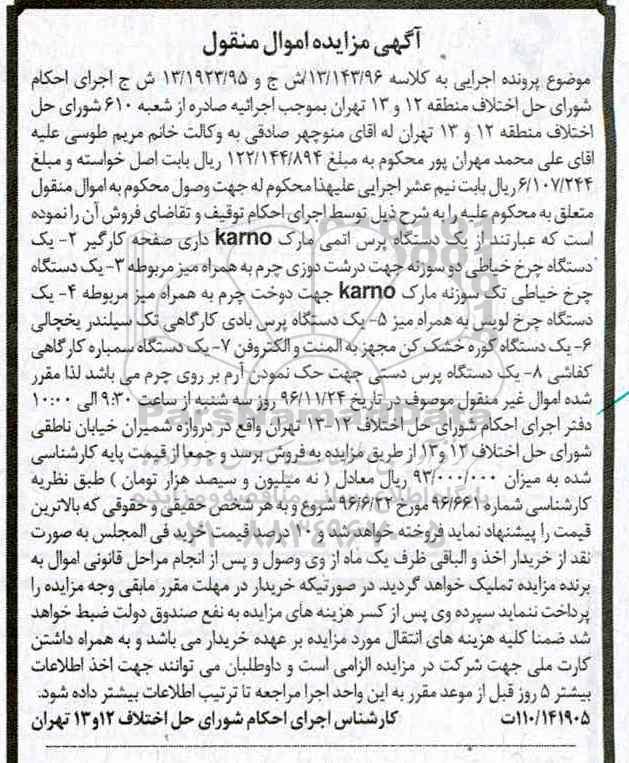 آگهی مزایده اموال منقول
موضوع پرونده اجرایی به کلاسه ۱۳/۱۴۳/۹۶/ش ج و ۱۳/۱۹۲۳/۹۵ ش ج اجرای احکام
شورای حل اختلاف منطقه ۱۲ و ۱۳ تهران بموجب اجرائیه صادره از شعبه ۶۱۰ شورای حل
اختلاف منطقه ۱۲ و ۱۳ تهران له اقای منوچهر صادقی به وکالت خانم مریم طوسی علیه
اقای علی محمد مهران پور محکوم به مبلغ ۱۲۲/۱۴۴/۸۹۴ ریال بابت اصل خواسته و مبلغ
۶/۱۰۷/۲۴۴ ریال بابت نیم عشر اجرایی علیهذا محکوم له جهت وصول محکوم به اموال منقول
متعلق به محکوم علیه را به شرح ذیل توسط اجرای احکام توقیف و تقاضای فروش آن را نموده
است که عبارتند از یک دستگاه پرس اتمی مارک karno داری صفحه کارگیر ۲- یک
دستگاه چرخ خیاطی دو سوزنه جهت درشت دوزی چرم به همراه میز مربوطه ۳- یک دستگاه
چرخ خیاطی تک سوزنه مارک karno جهت دوخت چرم به همراه میز مربوطه ۴- یک
دستگاه چرخ لویس به همراه میز ۵- یک دستگاه پرس بادی کارگاهی تک سیلندر یخچالی
۶- یک دستگاه کوره خشک کن مجهز به المنت و الکتروفن ۷- یک دستگاه سمباره کارگاهی
کفاشی ۸- یک دستگاه پرس دستی جهت حک نمودن آرم بر روی چرم می باشد لذا مقرر
شده اموال غیر منقول موصوف در تاریخ ۹۶/۱۱/۲۴ روز سه شنبه از ساعت ۹:۳۰ الی ۱۰:۰۰
دفتر اجرای احکام شورای حل اختلاف ۱۲-۱۳ تهران واقع در دروازه شمیران خیابان ناطقی
شورای حل اختلاف ۱۲ و۱۳ از طریق مزایده به فروش برسد و جمعا از قیمت پایه کارشناسی
شده به میزان ۹۳/۰۰۰/۰۰۰ ریال معادل ( نه میلیون و سیصد هزار تومان ) طبق نظریه
کارشناسی شماره ۹۶/۶۶۱ مورخ ۹۶/۶/۲۲ شروع و به هر شخص حقیقی و حقوقی که بالاترین
قیمت را پیشنهاد نماید فروخته خواهد شد و ۱۰ درصد قیمت خرید فی المجلس به صورت
نقد از خریدار اخذ و الباقی ظرف یک ماه از وی وصول و پس از انجام مراحل قانونی اموال به
برنده مزایده تملیک خواهد گردید. در صورتیکه خریدار در مهلت مقرر مابقی وجه مزایده را
پرداخت ننماید سپرده وی پس از کسر هزینه های مزایده به نفع صندوق دولت ضبط خواهد
شد ضمنا کلیه هزینه های انتقال مورد مزایده بر عهده خریدار می باشد و به همراه داشتن
کارت ملی جهت شرکت در مزایده الزامی است و داوطلبان می توانند جهت اخذ اطلاعات
بیشتر ۵ روز قبل از موعد مقرر به این واحد اجرا مراجعه تا ترتیب اطلاعات بیشتر داده شود.
۱۱۰/۱۴۱۹۰۵ت کارشناس اجرای احکام شورای حل اختلاف ۱۲و۱۳ تهران